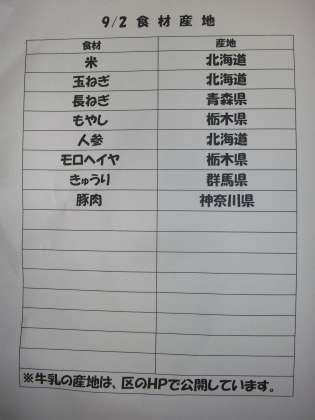 9/2 食材産地
食材 産地
米 北海道
玉ねぎ 北海道
長ねぎ 青森県
もやし 栃木県
人参 北海道
モロヘイヤ 栃木県
きゅうり 群馬県
豚肉 神奈川県
※牛乳の産地は、区のHPで公開しています。